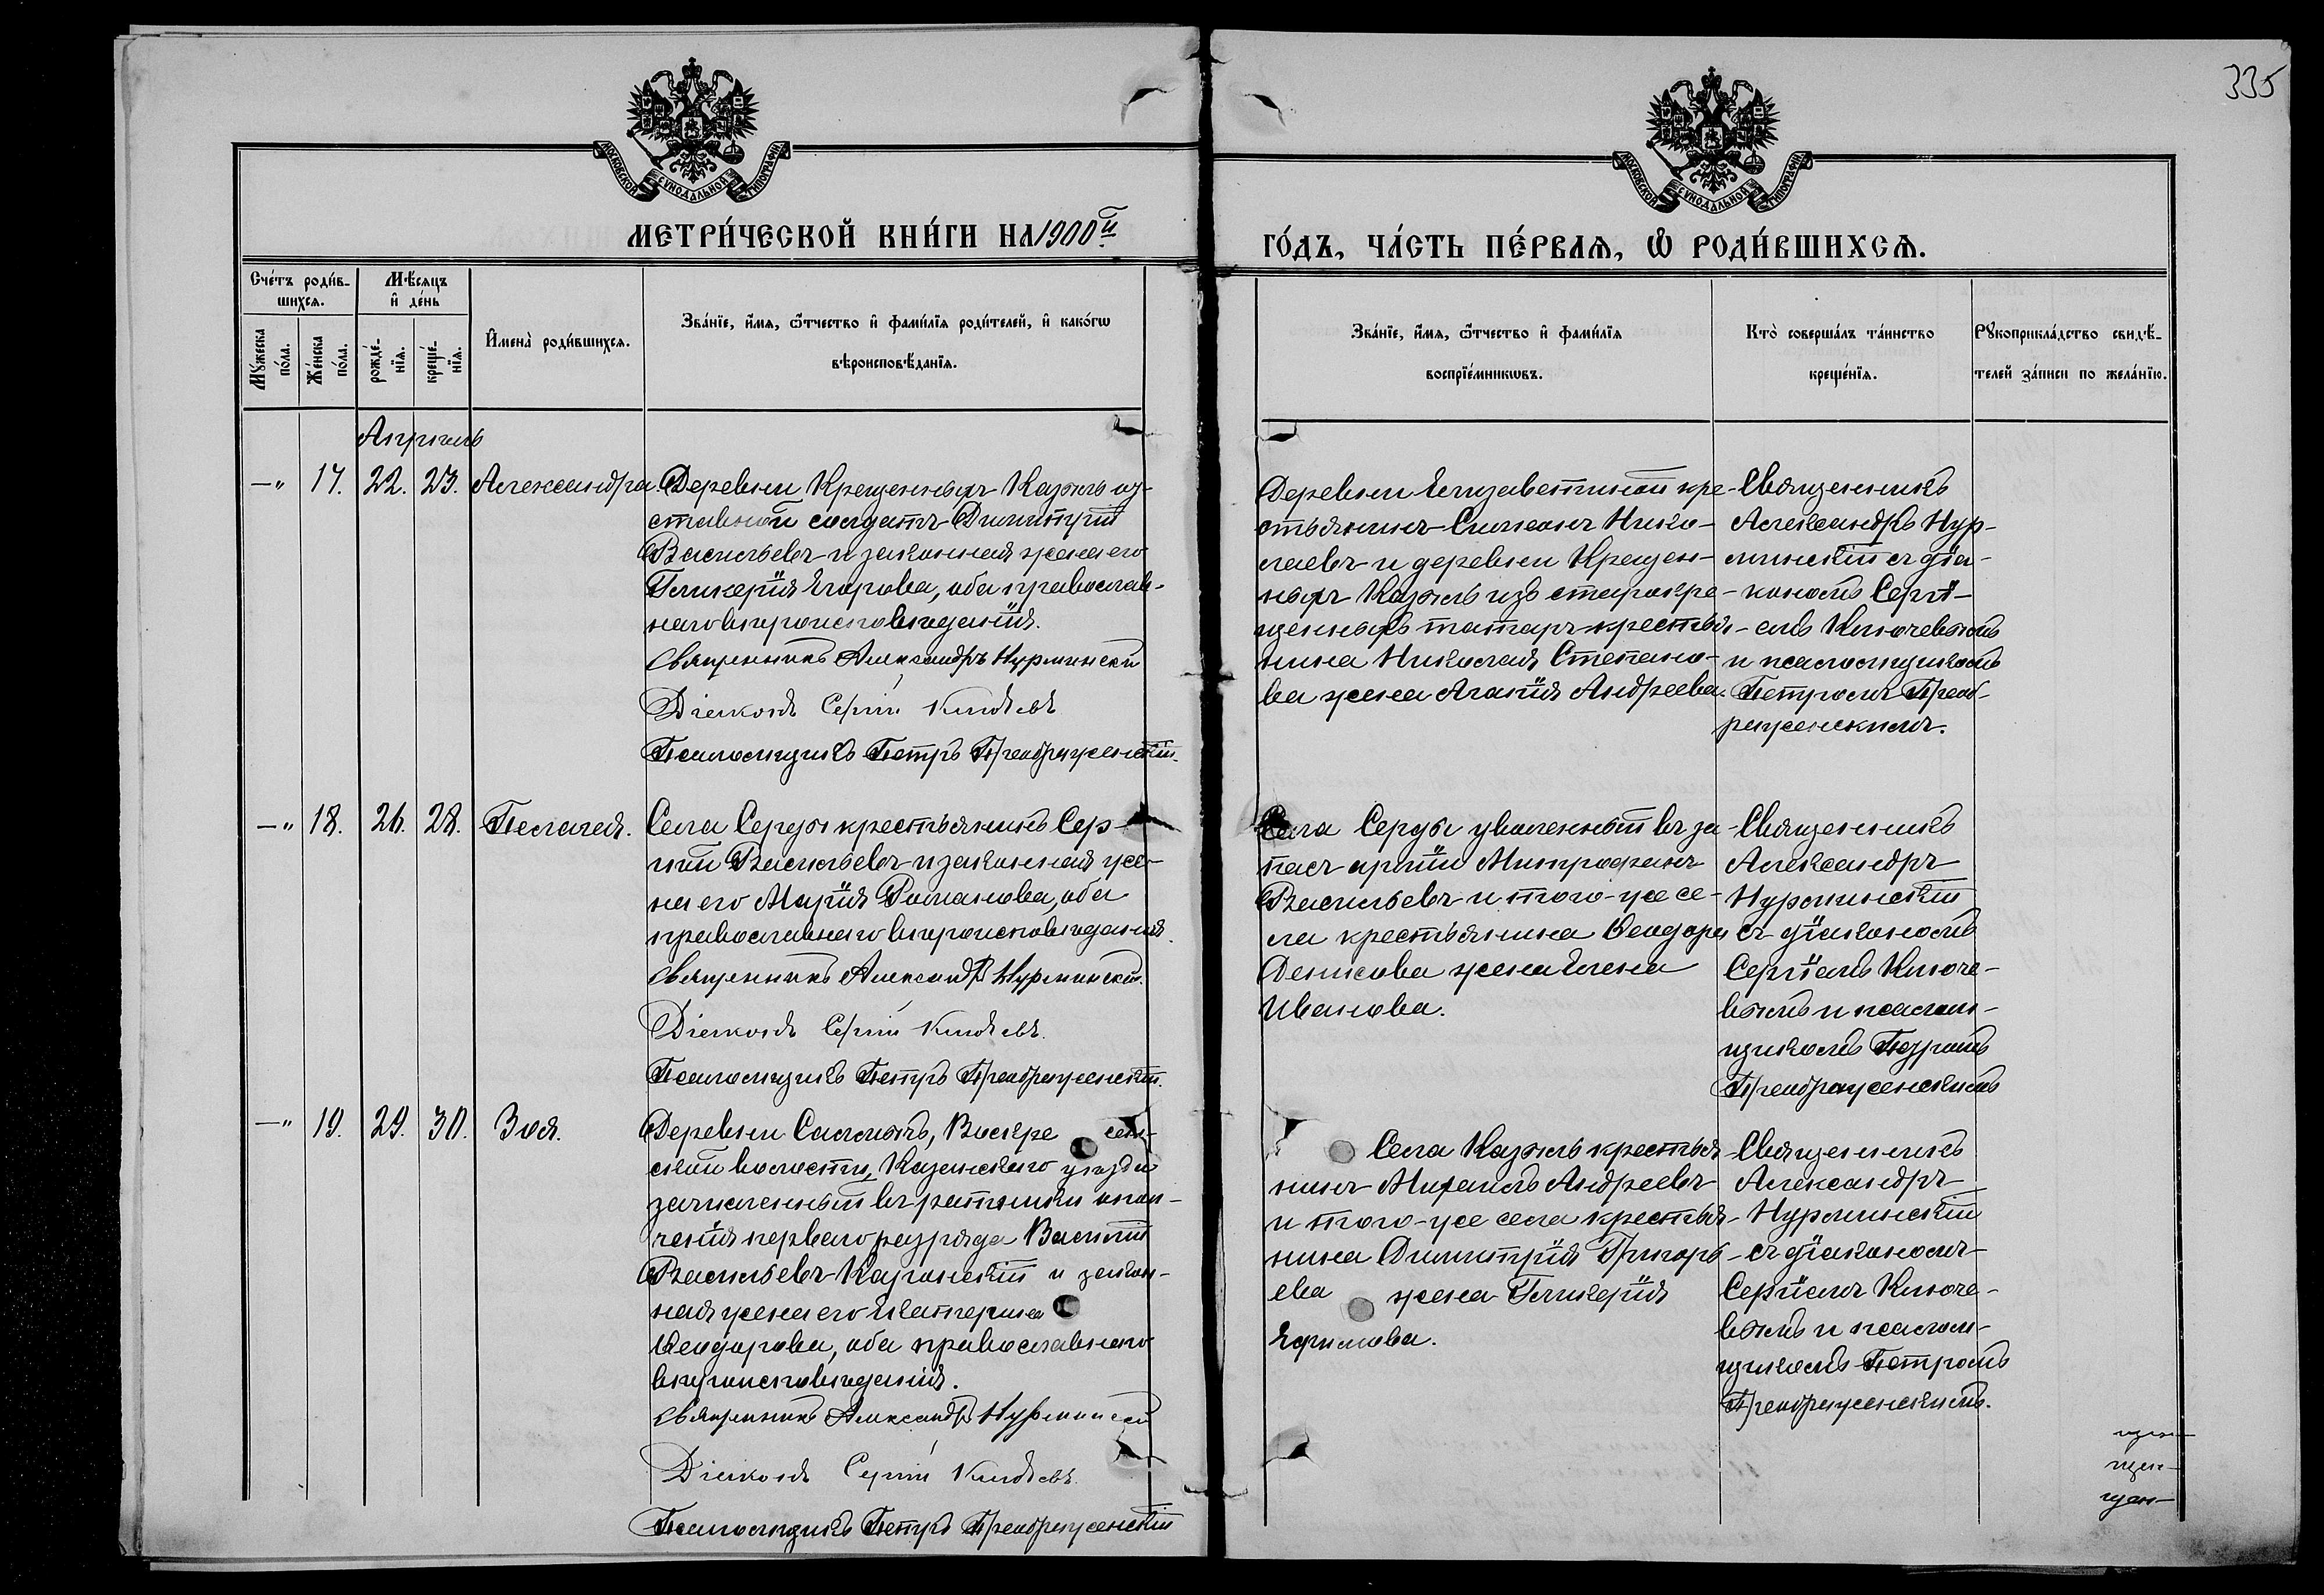 335
МОСКОВСКОЙ СѴНОДАЛЬНОЙ ТИПОГРАФІИ
МОСКОВСКОЙ СѴНОДАЛЬНОЙ ТИПОГРАФІИ
МЕТРИ́ЧЕСКОЙ КНИ́ГИ НА 1900й
ГО́ДЪ, ЧА́СТЬ ПЕ́РВАѦ, Ѿ РОДИ́ВШИХСѦ.
Сче́тъ роди́в-
шихсѧ.
Мꙋ́жеска по́ла.
Же́нска по́ла.
Мѣ́сѧцъ
и҆ де́нь
рожде́-нїѧ.
креще́-нїѧ.
И҆мена̀ роди́вшихсѧ.
Зва́нїе, и҆́мѧ, ѻ҆́тчество и҆ фами́лїѧ роди́телей, и҆ како́гѡ
вѣроисповѣ́данїѧ.
Зва́нїе, и҆́мѧ, ѻ҆́тчество и҆ фами́лїѧ
воспрїе́мникѡвъ.
Кто̀ соверша́лъ та́инство
креще́нїѧ.
Рꙋкоприкла́дство свидѣ́-
телей за́писи по жела́нїю.
Апрѣль
—„ 17. 22. 23. Александра.
Деревни Крещеныхъ Казыль от-
ставной солдатъ Димитрій
Васильевъ и законная жена его
Гликерія Егорова, оба православ-
наго вѣроисповѣданія.
Священникъ Александръ Нурминскій
Діаконъ Сергій
Псаломщикъ Петръ Преображенскій.
Деревни Елизаветиной кре-
стьянинъ Симеонъ Нико-
лаевъ и деревни Крещен-
ныхъ Казыль изъ старокре-
щенныхъ татаръ крестья-
нина Николая Степано-
ва жена Агапія Андреева.
Священникъ
Александръ Нур-
минскій съ діа-
кономъ Сергі-
емъ Ключевымъ
и псаломщикомъ
Петромъ Преоб-
раженскимъ.
—„ 18. 26. 28. Пелагея.
Села Серды крестьянинъ Сер-
гій Васильевъ и законная же-
на его Марія Романова, оба
православнаго вѣроисповѣданія.
Священникъ Александръ Нурминскій.
Діаконъ Сергій
Псаломщикъ Петръ Преображенскій.
Села Серды уволенный въ за-
пасъ арміи Митрофанъ
Васильевъ и того-же се-
ла крестьянина Ѳеодора
Денисова жена Елена
Иванова.
Священникъ
Александръ
Нурминскій
съ діакономъ
Сергіемъ Ключе-
вымъ и псалом-
щикомъ Петромъ
Преображенскимъ
—„ 19. 29. 30. Зоя.
Деревни
ской волости, Казанскаго уѣзда
зачисленный въ ратники опол-
ченія перваго разряда Василій
Васильевъ и закон-
ная жена его Екатерина
Ѳеодорова, оба православнаго
вѣроисповѣданія.
Священникъ Александръ Нурминскій
Діаконъ Сергій
Псаломщикъ Петръ Преображенскій
Села Казыль крестья-
нинъ Михаилъ Андреевъ
и того-же села крестья-
нина Димитрія Григорь-
ева жена Гликерія
Ефимова.
Священникъ
Александръ
Нурминскій
съ діакономъ
Сергіемъ Ключе-
вымъ и псалом-
щикомъ Петромъ
Преображенскимъ.